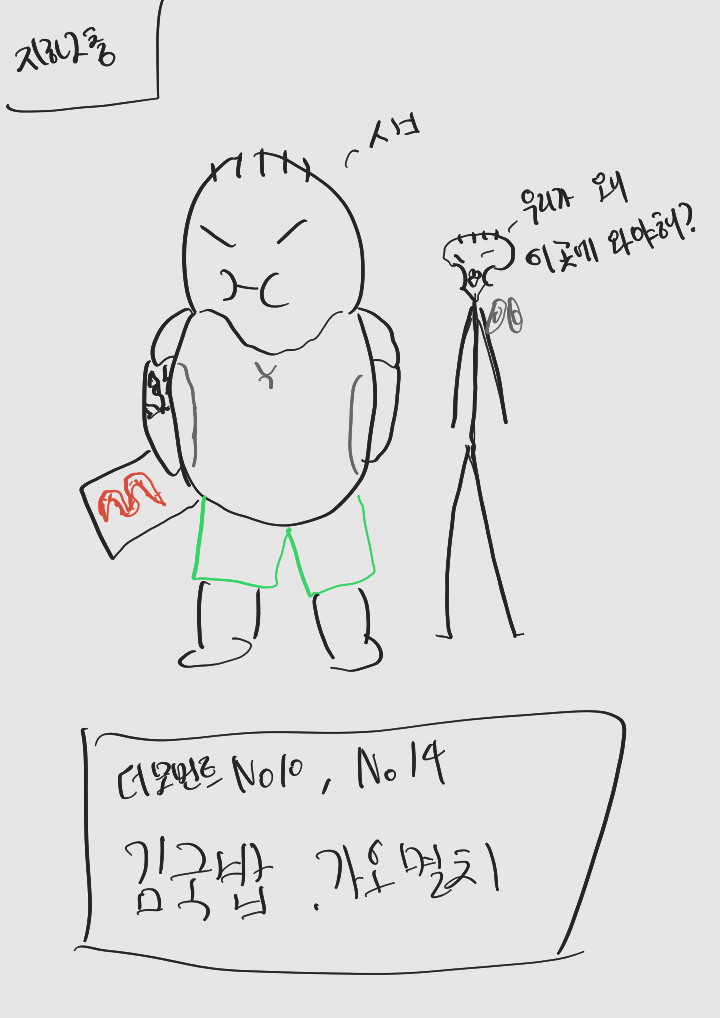 지하2층
시크
우리가 왜
이곳에 와야해?
더모먼트 No10, No 14
김국밥 . 가오멸치